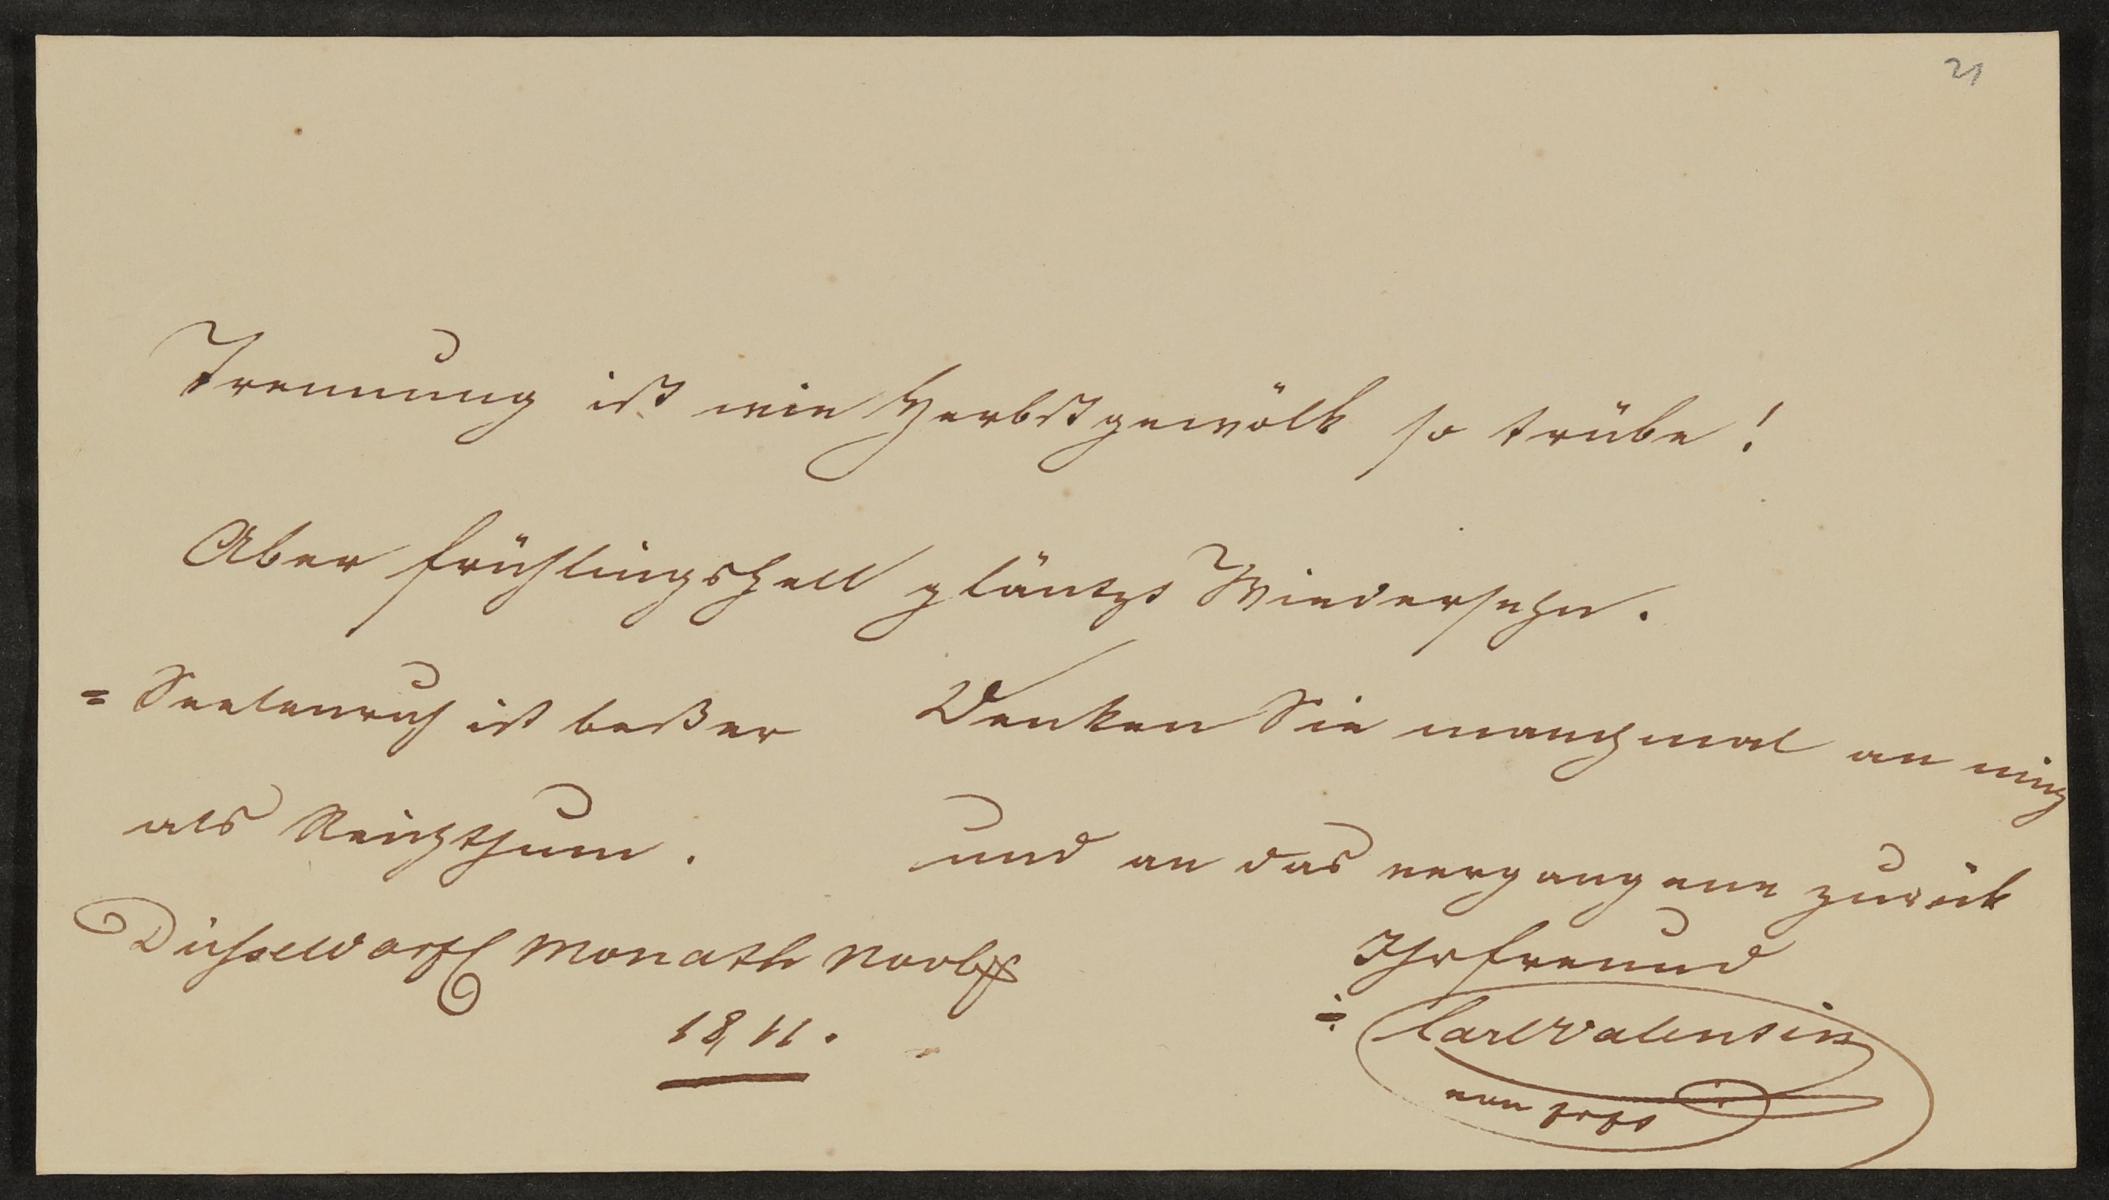 21
Trennung ist wie Herbstgewölk so trübe!
Aber frühlingshell gläntzt Wiedersehn.
= Seelenruh ist beßer
als Reichthum.
Düsseldorff Monath Novbr
1811.
Denken Sie manchmal an mich
und an das vergangene zurück
Ihr freund
Carl Valentin
von